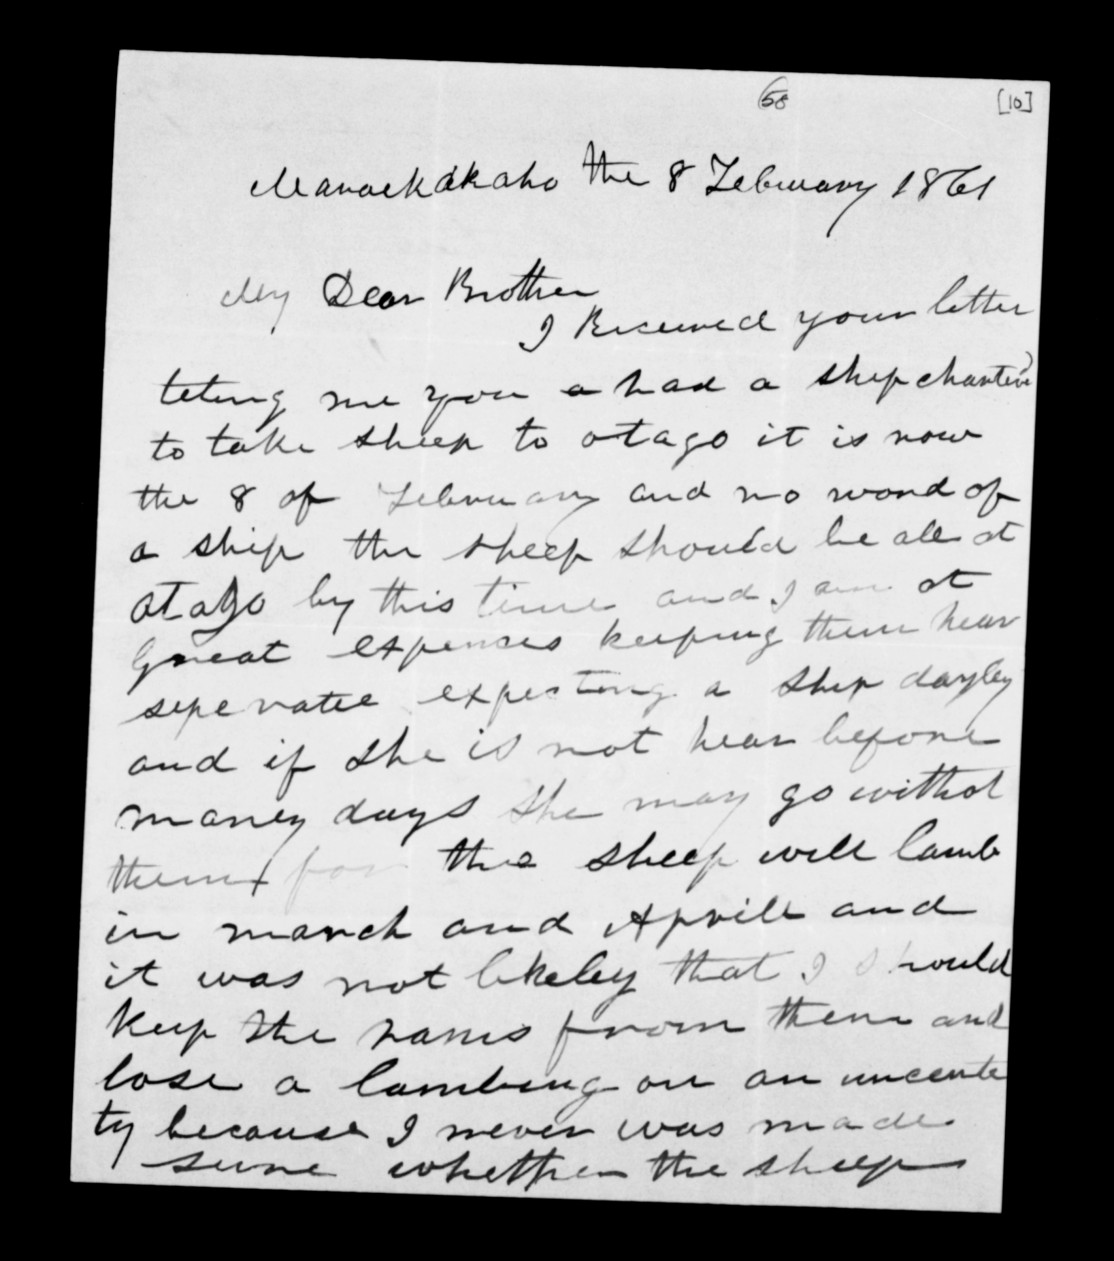 58
[10]
Maraekakaho the 8 February 1861
My Dear Brother
I Received your letter
teting me you a had a ship charterd
to take sheep to otago it is now
the 8 of February and no word of
a ship the sheep should be all at
otago by this time and I am at
Great expences keeping them hear
seperatee expecting a ship dayley
and if she is not hear before
maney days she may go withot
them for the sheep will lamb
in march and Aprill and
it was not likeley that I should
keep the rams from them and
lose a lambing on an uncente
ty because I never was made
sure whether the sheep